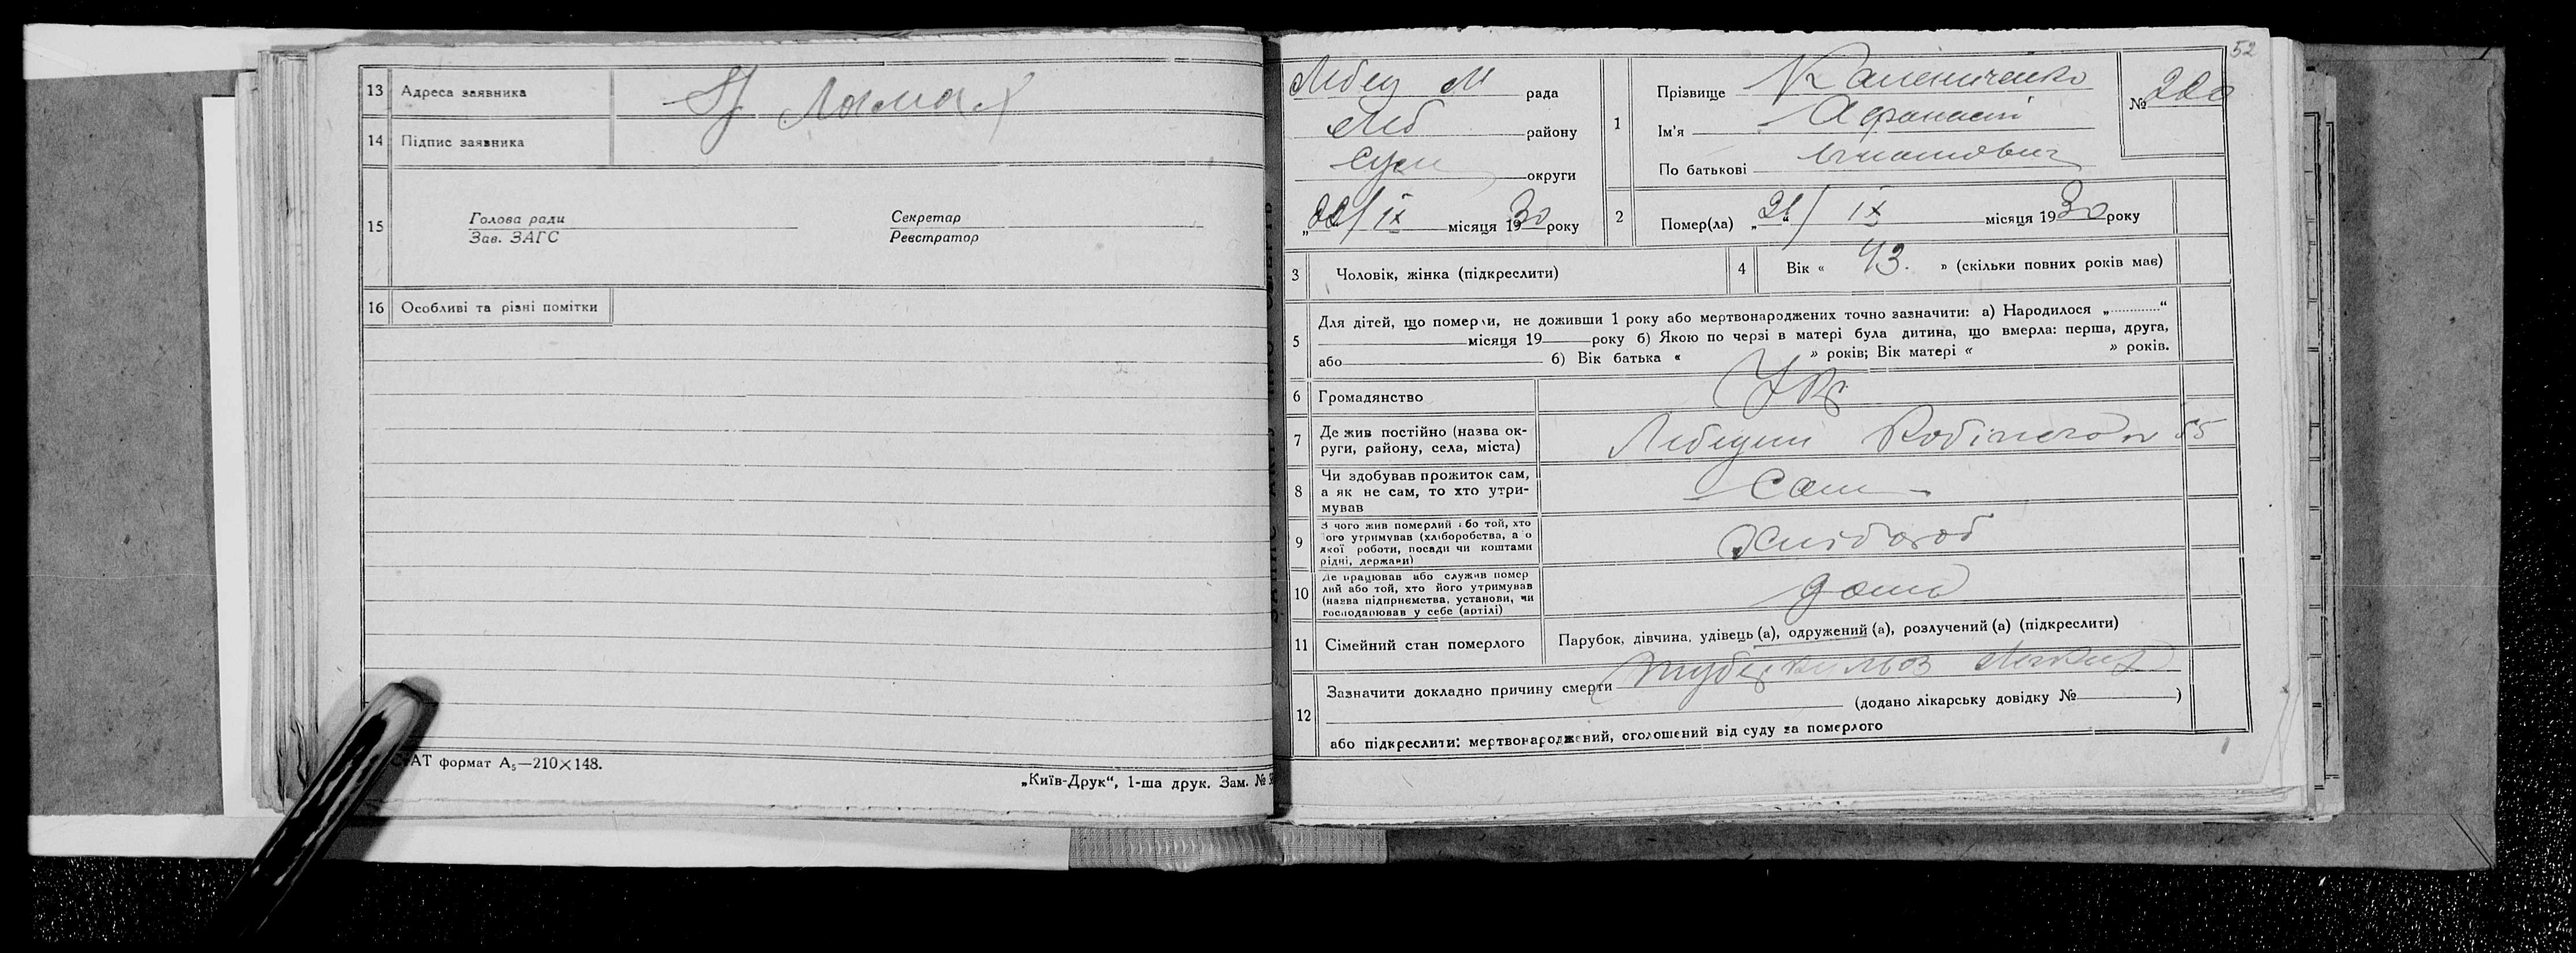 13 Адреса заявника
Ломах
14 Підпис заявника
15
Голова ради
Зав. ЗАГС
Секретар
Реєстратор
16 Особливі та різні помітки
АТ формат А₅—210×148.
„Київ-Друк“, 1-ша друк. Зам. №
52
Лебед М рада
Леб району
Суми округи
„22/ ІХ місяця 1930 року
1 Прізвище Калениченко
Ім'я Афанасій
По батькові Ігнатович
№ 220
2 Помер(ла) „21/ ІХ місяця 1930 року
3 Чоловік, жінка (підкреслити)
4 Вік « 43. » (скільки повних років має)
5 Для дітей, що померли, не доживши 1 року або мертвонароджених точно зазначити: а) Народилося „............“
місяця 19 року б) Якою по черзі в матері була дитина, що вмерла: перша, друга,
або б) Вік батька « » років; Вік матері « » років.
6 Громадянство Укр
7 Де жив постійно (назва ок-
руги, району, села, міста)
Лебедин 55
8 Чи здобував прожиток сам,
а як не сам, то хто утри-
мував
Сам
9 З чого жив померлий або той, хто
його утримував (хліборобства, або
якої роботи, посади чи коштами
рідні, держави)
Хлібороб
10 Де працював або служив помер
лий або той, хто його утримував
(назва підприємства, установи, чи
господарював у себе (артілі)
дома
11 Сімейний стан померлого Парубок, дівчина, удівець (а), одружений (а), розлучений (а) (підкреслити)
12 Зазначити докладно причину смерти туберкульоз легких
(додано лікарську довідку № )
або підкреслити: мертвонароджений, оголошений від суду за померлого